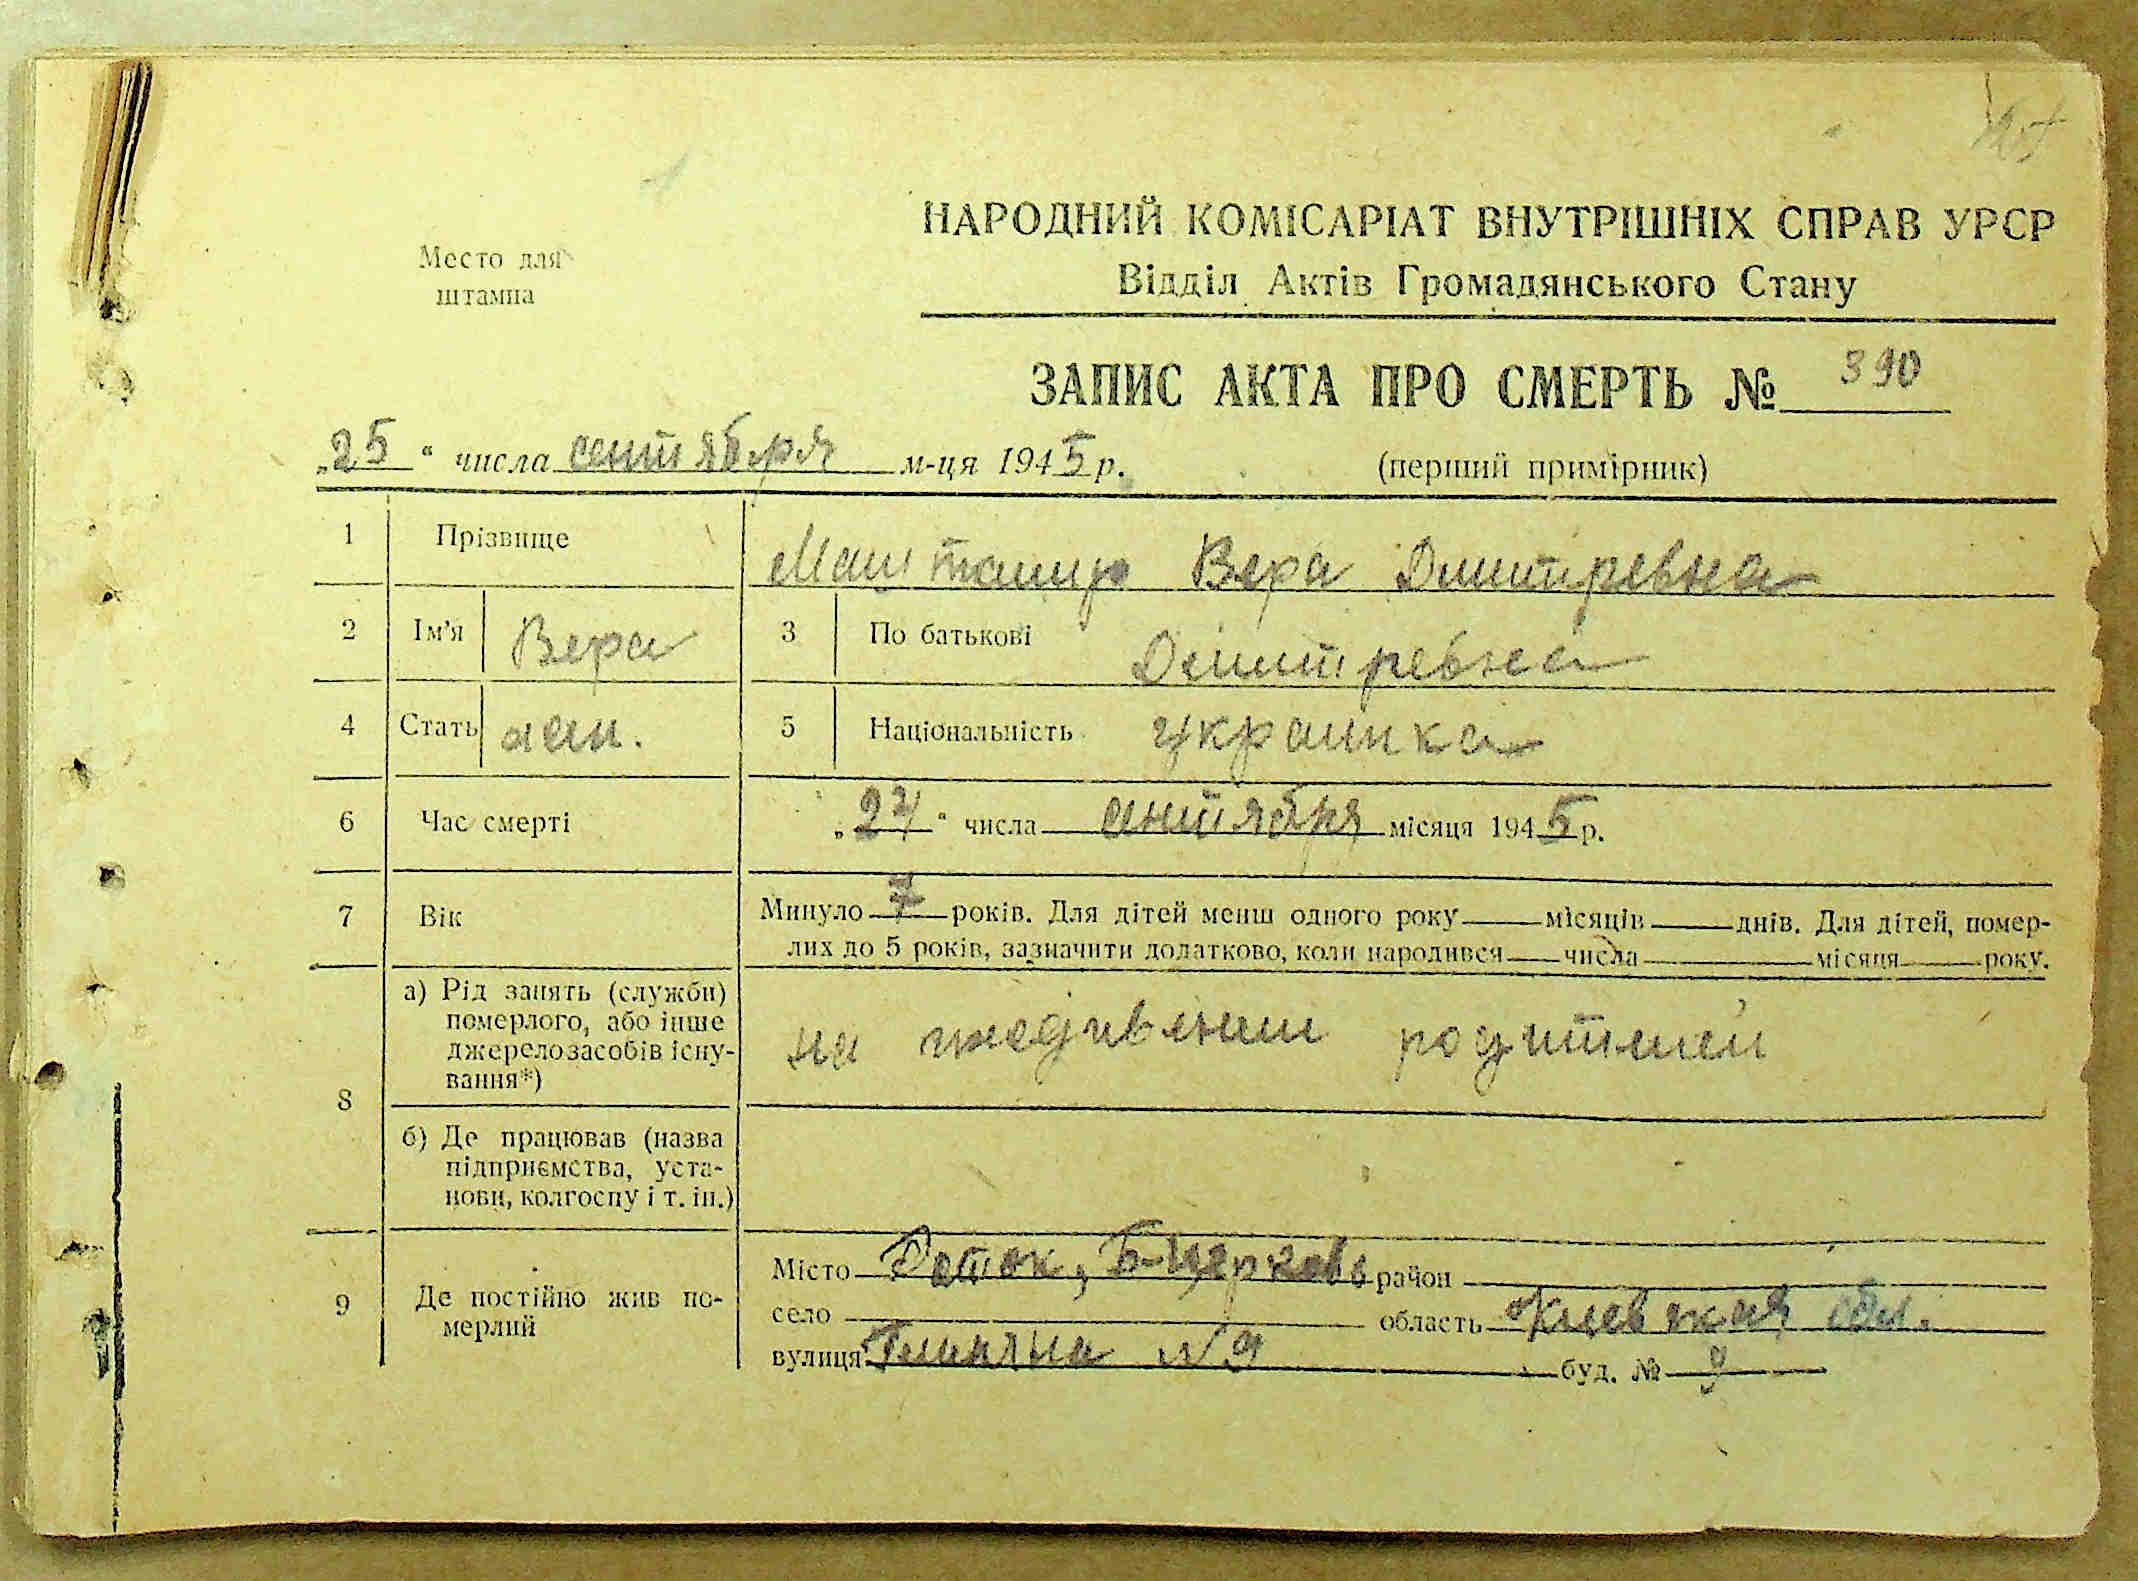 Место для
штампа
НАРОДНИЙ КОМІСАРІАТ ВНУТРІШНІХ СПРАВ УРСР
Відділ Актів Громадянського Стану
ЗАПИС АКТА ПРО СМЕРТЬ № 390
„25“ числа сентября м-ця 1945 р. (перший примірник)
1 Прізвище Маштапир Вера Дмитревна
2 Ім’я Вера 3 По батькові Дмитревна
4 Стать жен. 5 Національність украинка
6 Час смерті „24“ числа сентября місяця 1945 р.
7 Вік Минуло 7 років. Для дітей менш одного року місяців днів. Для дітей, помер-
лих до 5 років, зазначити додатково, коли народився числа місяця року.
8 а) Рід занять (служби)
померлого, або інше
джерело засобів існу-
вання*)
на иждивении родителей
б) Де працював (назва
підприємства, уста-
нови, колгоспу і т. ін.)
9 Де постійно жив по-
мерлий
Місто Роток, Б-Церковь район
село область Киевская обл.
вулиця №9 буд. № 9